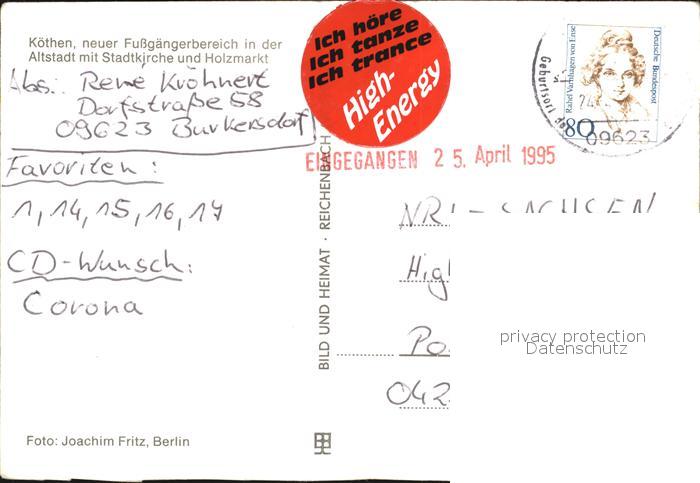 Köthen, neuer Fußgängerbereich in der
Altstadt mit Stadtkirche und Holzmarkt
Abs.: René Kröhnert
Dorfstraße 58
09623 Burkersdorf
Favoriten:
1, 14, 15, 16, 17
CD-Wunsch:
Corona
Foto: Joachim Fritz, Berlin
BILD UND HEIMAT · REICHENBACH
Ich höre
Ich tanze
Ich trance
High-
Energy
EINGEGANGEN 2 5. April 1995
Geburtsort
09623
Rahel Varnhagen von Ense
Deutsche Bundespost
80
SACHSEN
Hig
Po
042
privacy protection
Datenschutz